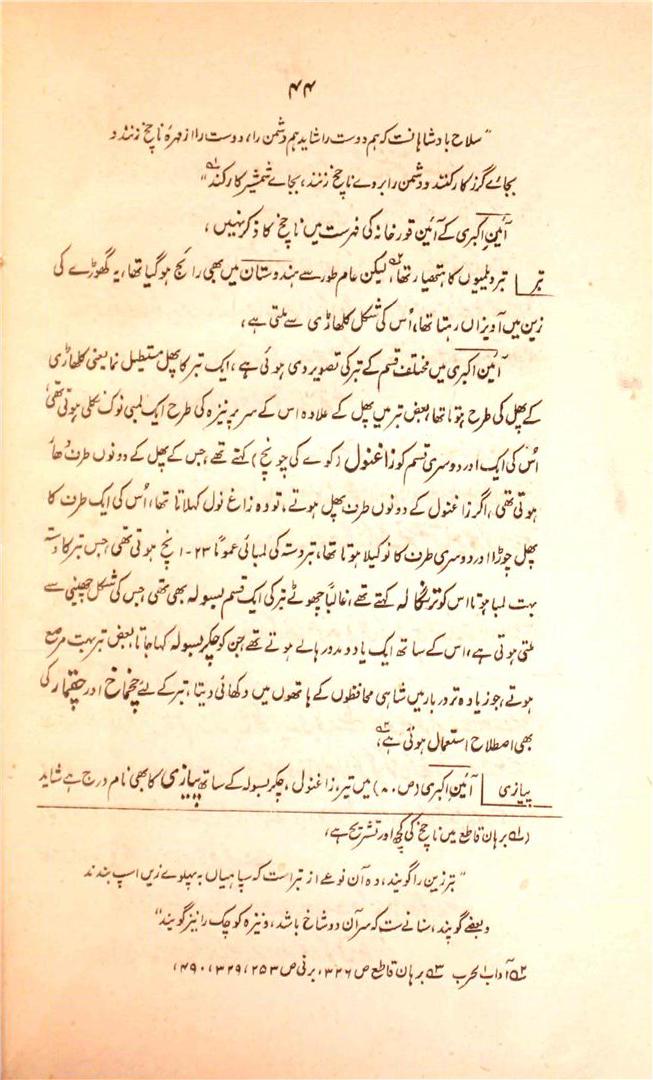 ۴۴
"سلاح بادشاہانت کہ ہم دوست را شاید ہم دشمن را، دوست را از مہرہ ناچخ زنند و
بجائے گرز کار کنند و دشمن را بروے ناچخ زنند، بجاے شمشیر کار کند"
آئین اکبری کے آئین قورخانہ کی فہرست میں ناچخ کا ذکر نہیں،
تبر تبر ویلمیوں کا ہتھیار تھا، لیکن عام طور سے ہندوستان میں بھی رائج ہو گیا تھا، یہ گھوڑے کی
زین میں آویزاں رہتا تھا، اُس کی شکل کلھاڑی سے ملتی ہے،
آئین اکبری میں مختلف قسم کے تبر کی تصویر دی ہوئی ہے، ایک تبر کا پھل مستطیل نما یعنی کلھاڑی
کے پھل کی طرح ہوتا تھا، بعض تبر میں پھل کے علاوہ اس کے سر پر نیزہ کی طرح ایک لمبی نوک نکلی ہوتی تھی،
اُس کی ایک اور دوسری قسم کو زاغنول (کوے کی چونچ) کہتے تھے، جس کے پھل کے دونوں طرف دُھار
ہوتی تھی، اگر زاغنول کے دونوں طرف پھل ہوتے، تو وہ زاغ نول کہلاتا تھا، اُس کی ایک طرف کا
پھل چوڑا اور دوسری طرف کا نوکیلا ہوتا تھا، تبر دستہ کی لمبائی عموماً ۲۳-۱ انچ ہوتی تھی، جس تبر کا دستہ
بہت لمبا ہوتا اس کو ترنگالہ کہتے تھے، غالباً چھوٹے تبر کی ایک قسم بسولہ بھی تھی، جس کی شکل چھینی سے
ملتی ہوتی ہے، اس کے ساتھ ایک یا دو مدور ہالے ہوتے تھے، جن کو چکر بسولہ کہا جاتا، بعض تبر بہت مرصع
ہوتے، جو زیادہ تر دربار میں شاہی محافظوں کے ہاتھوں میں دکھائی دیتا، تبر کے لئے چخماخ اور چقمار کی
بھی اصطلاح استعمال ہوئی ہے،
پیازی آئین اکبری (ص ۸۰) میں تبر، زاغنول، چکر بسولہ کے ساتھ پیازی کا بھی نام درج ہے شاید
(۱) برہان قاطع میں ناچخ کی کچھ اور تشریح ہے،
"تبرزین را گویند، دہ آن نوعے از تبر است کہ سپاہیاں بہ پہلوے زیں اسپ بندند
و بعضے گویند، سنانے ست کہ سر آن دو شاخ باشد، و نیزہ کوچک را نیز گویند"
۲؎ آداب الحرب ۳؎ برہان قاطع ص ۳۲۶، برنی ص ۲۵۳، ۳۲۹، ۴۹۰،